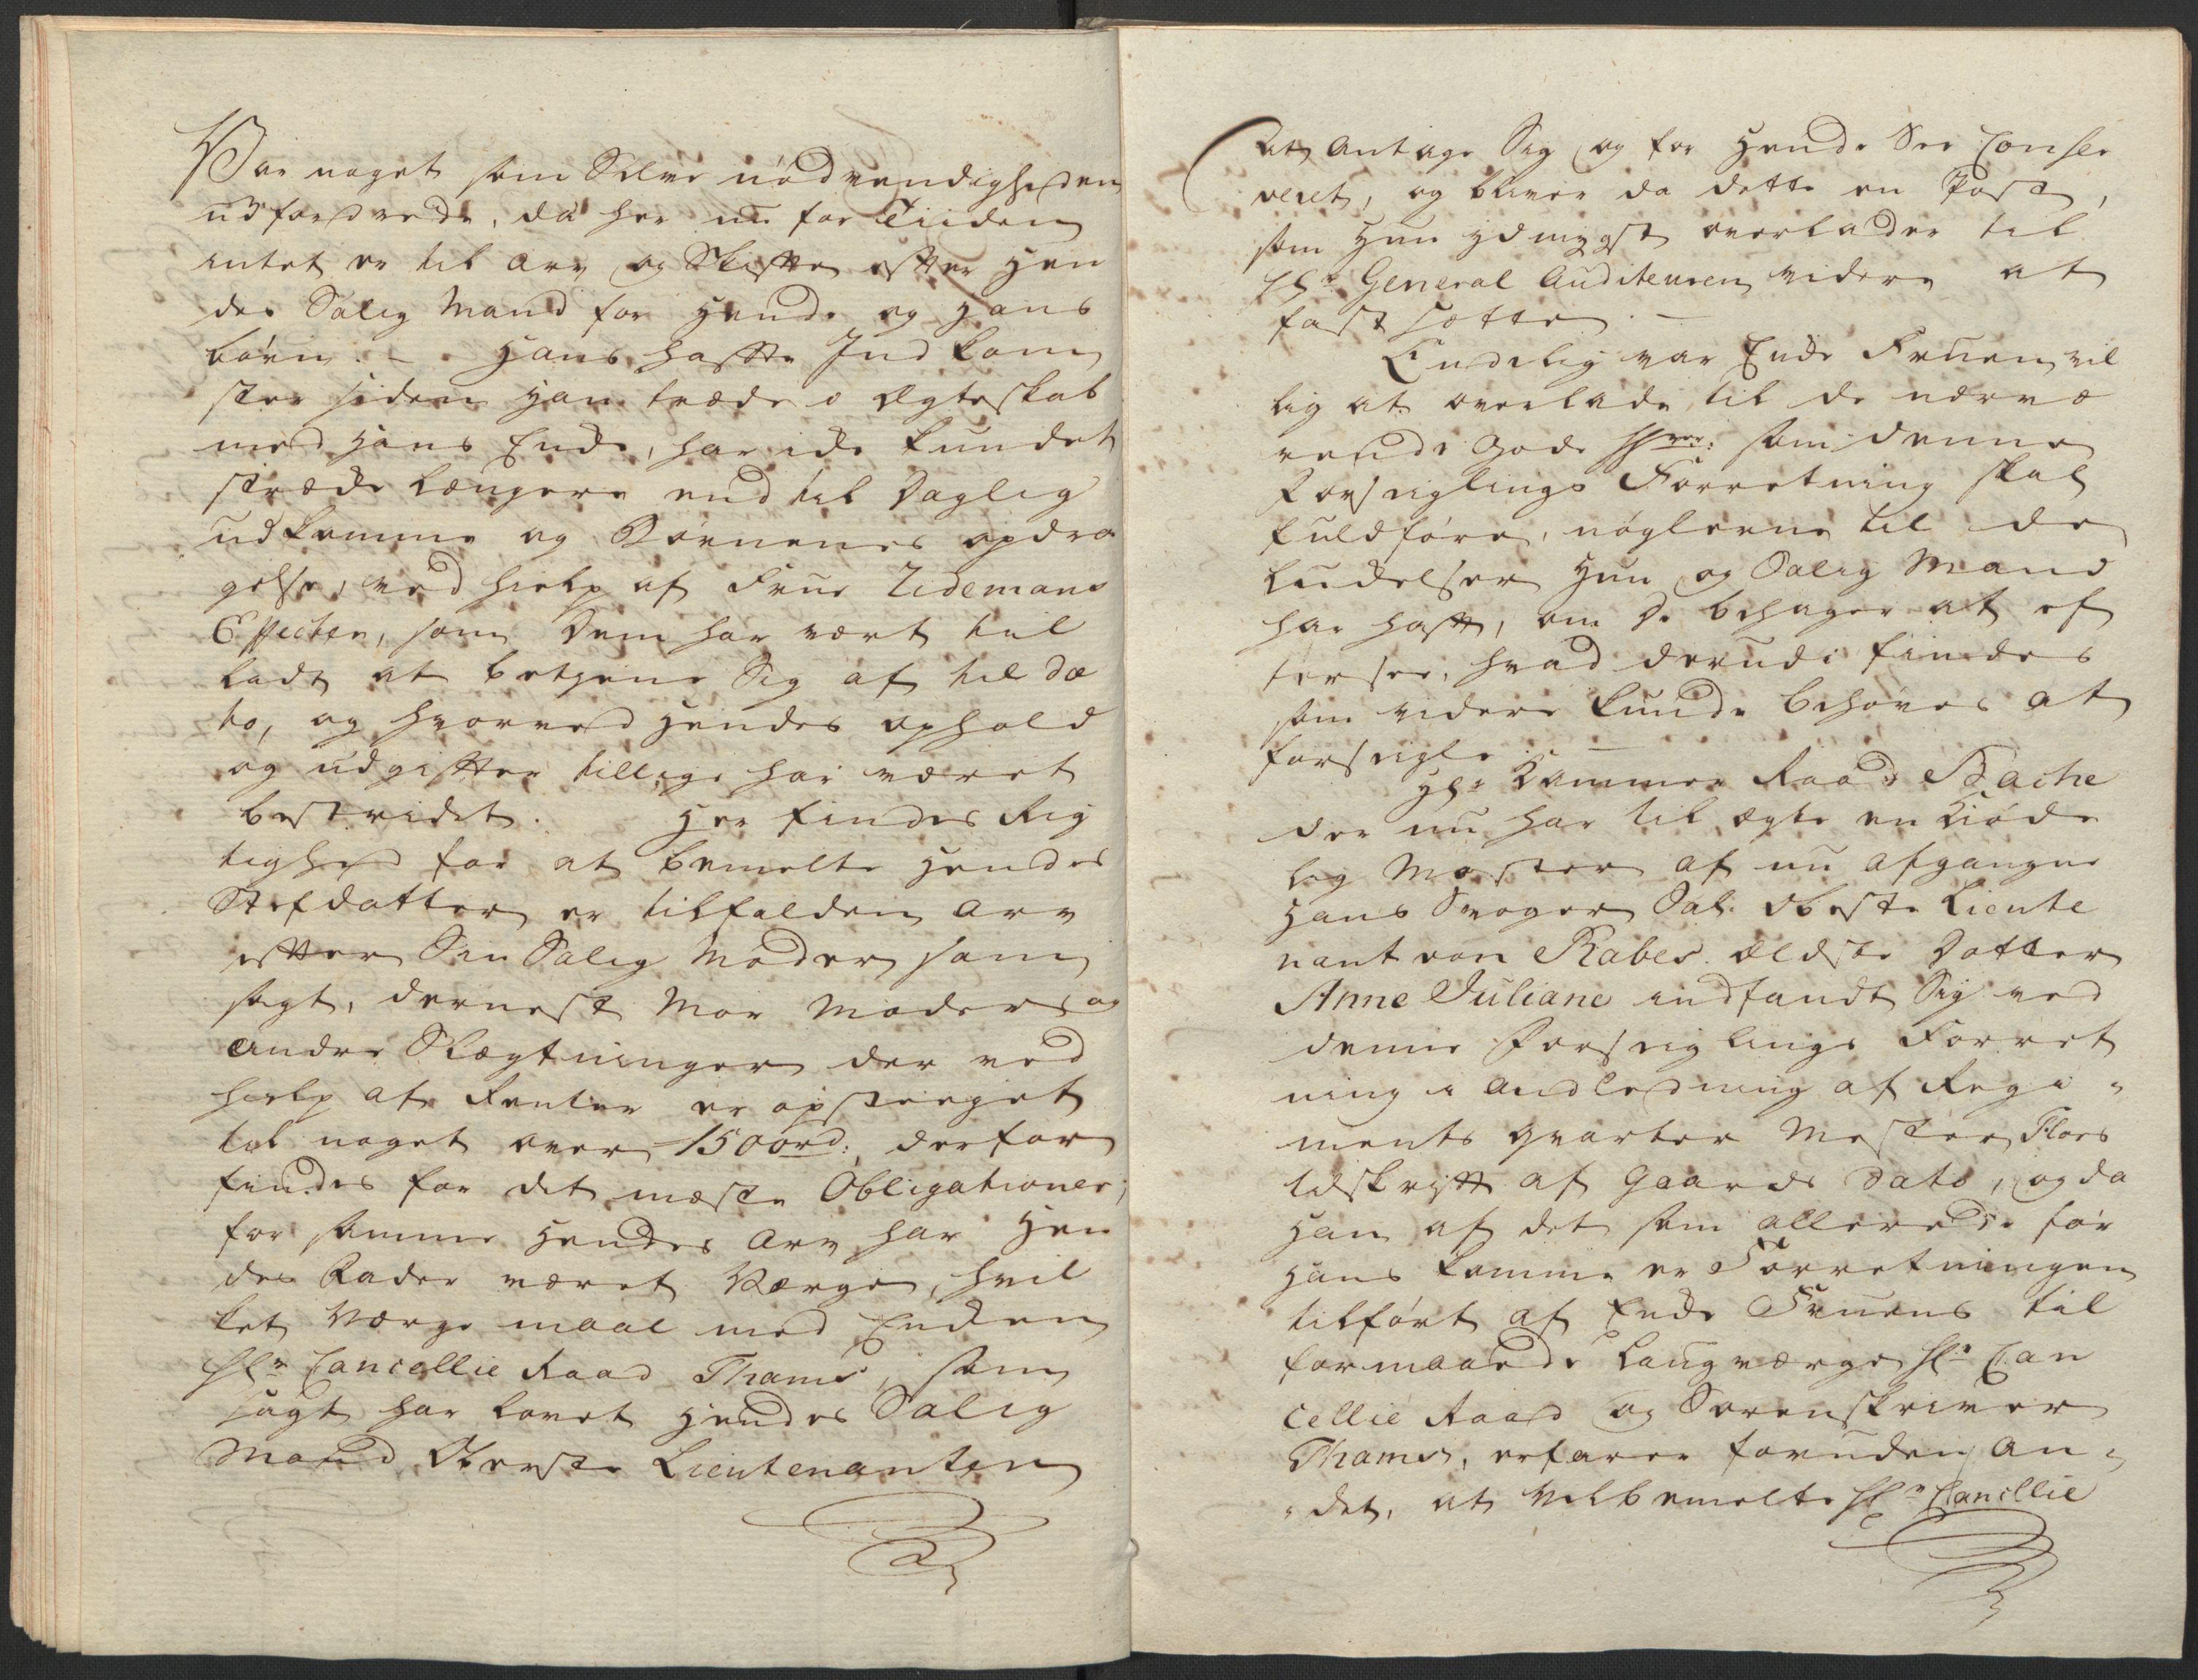 Var noget som Selve nødvendigheden
udfordrede, da her nu for Tiiden
intet er til arv og Skifte efter Hen
des Salig Mand for Hende og Hans
børn. - Hans hafte Indkom
ster siden Han træde i Ægteskab
med Hans Enke, har icke kundet
strække længere end til Daglig
udkomme og Børnenes opdra
gelse, ved hielp af Frue Tidemans
Effecter, som Dem har vært til
ladt at betiene Sig af til Da
to, og hvorved Hendes ophold
og udgifter tillige har været
bestridet. Her findes Rig
tighed for at bemelte Hendes
Stefdatter er tilfalden Arv
efter Sin Salig Moder som
sagt, dernest Mor Moders og
andre Slægtninger der ved
hielp af Renter er opsteeget
til noget over 1500 rd:, derfor
findes for det mæste Obligationer;
for samme Hendes Arv har Hen
des Fader været Værge, hvil
ket Værge maal med Enken
Hr Cancellie Raad Thams, som
sagt har lovet Hendes Salig
Mand Oberste Lieutenanten
at antage Sig og for Hende See Conser
veret, og bliver da dette en Post,
som Hun ydmygst overlader til
Hr General Auditeuren videre at
fastsætte. -
Endelig var Enke Fruen vil
lig at overlade til de nærvæ
rende gode Hrer: som denne
Forseiglings Forretning skal
fuldføre, nøglerne til de
Ludelser Hun og Salig Mand
har haft, om De behager at ef
tersee, hvad derudi findes
som videre kunde behøves at
forseigle. -
Hr Kammer Raad Bache
der nu har til ægte en Kiøde
lig Moster af nu afgangne
Hans Svoger Sal. Obeste Lieute
nant von Rabes ældste Datter
Anne Juliane indfandt Sig ved
denne Forseiglings Forret
ning i andledning af Regi-
ments Qvarter Mester Floers
tilskrift af Gaards Dato, og da
Han af det som allerede før
Hans komme er Forretningen
tilført af Enke Fruens til
formaaede Laugværge Hr Can
cellie Raad og Sorenskriver
Thams, erfarer foruden an-
det, at Velbemelte Hr Cancellie